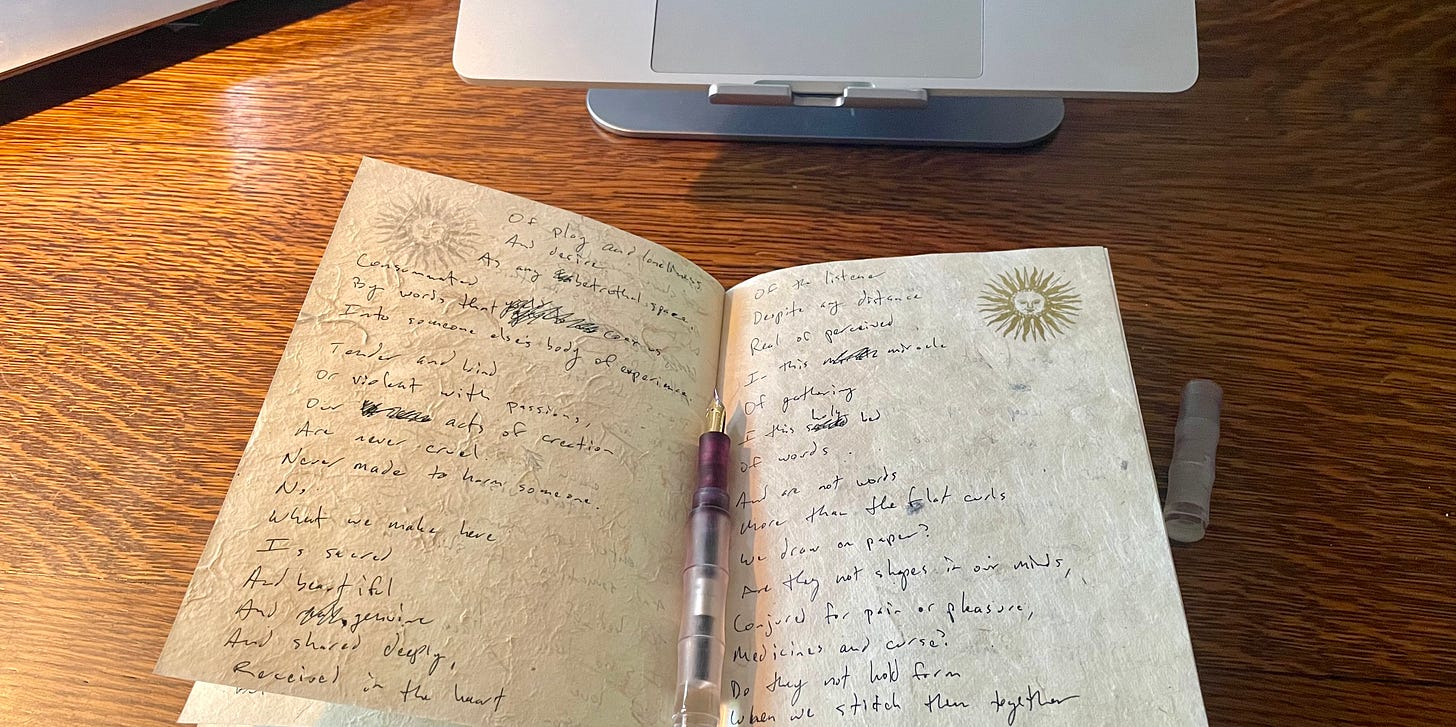 Of play and loneliness
And desire
As any betrothal space.
Consummated
By words that
Into someone else's body of experience.
Tender and kind
Or violent with passions,
Our acts of creation
Are never cruel
Never made to harm someone.
No.
What we make here
Is sacred
And beautiful
And genuine
And shared deeply,
Received in the heart
Of the listener
Despite any distance
Real or perceived
In this miracle
Of gathering
I this holy bed
Of words.
And are not words
More than the flat curls
We draw on paper?
Are they not shapes in our minds,
Conjured for pain or pleasure,
Medicines and curse?
Do they not hold form
When we stitch them together